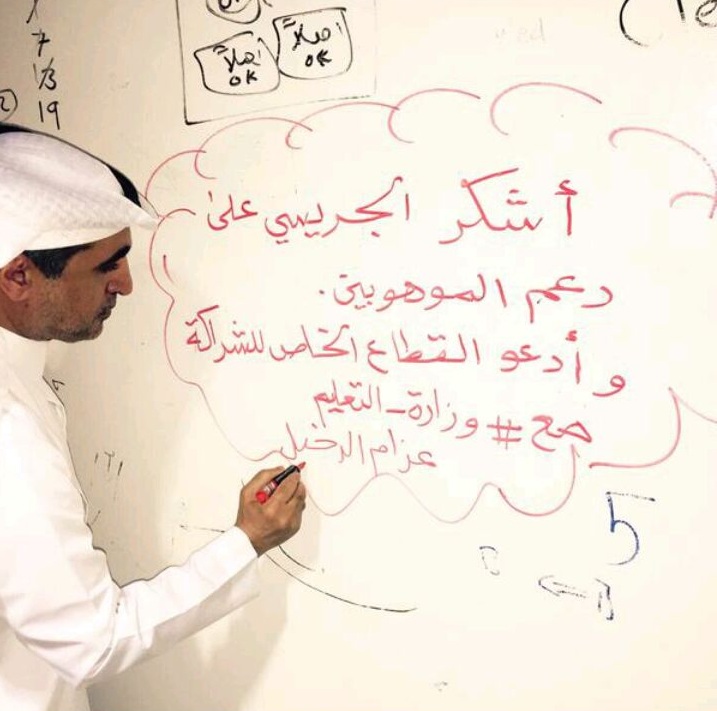 7
13
19
اهلاً
OK
اهلاً
OK
أشكر الجريسي على
دعم الموهوبين.
و أدعو القطاع الخاص للشراكة
مع # وزارة_التعليم
عزام الدخيل
5
B